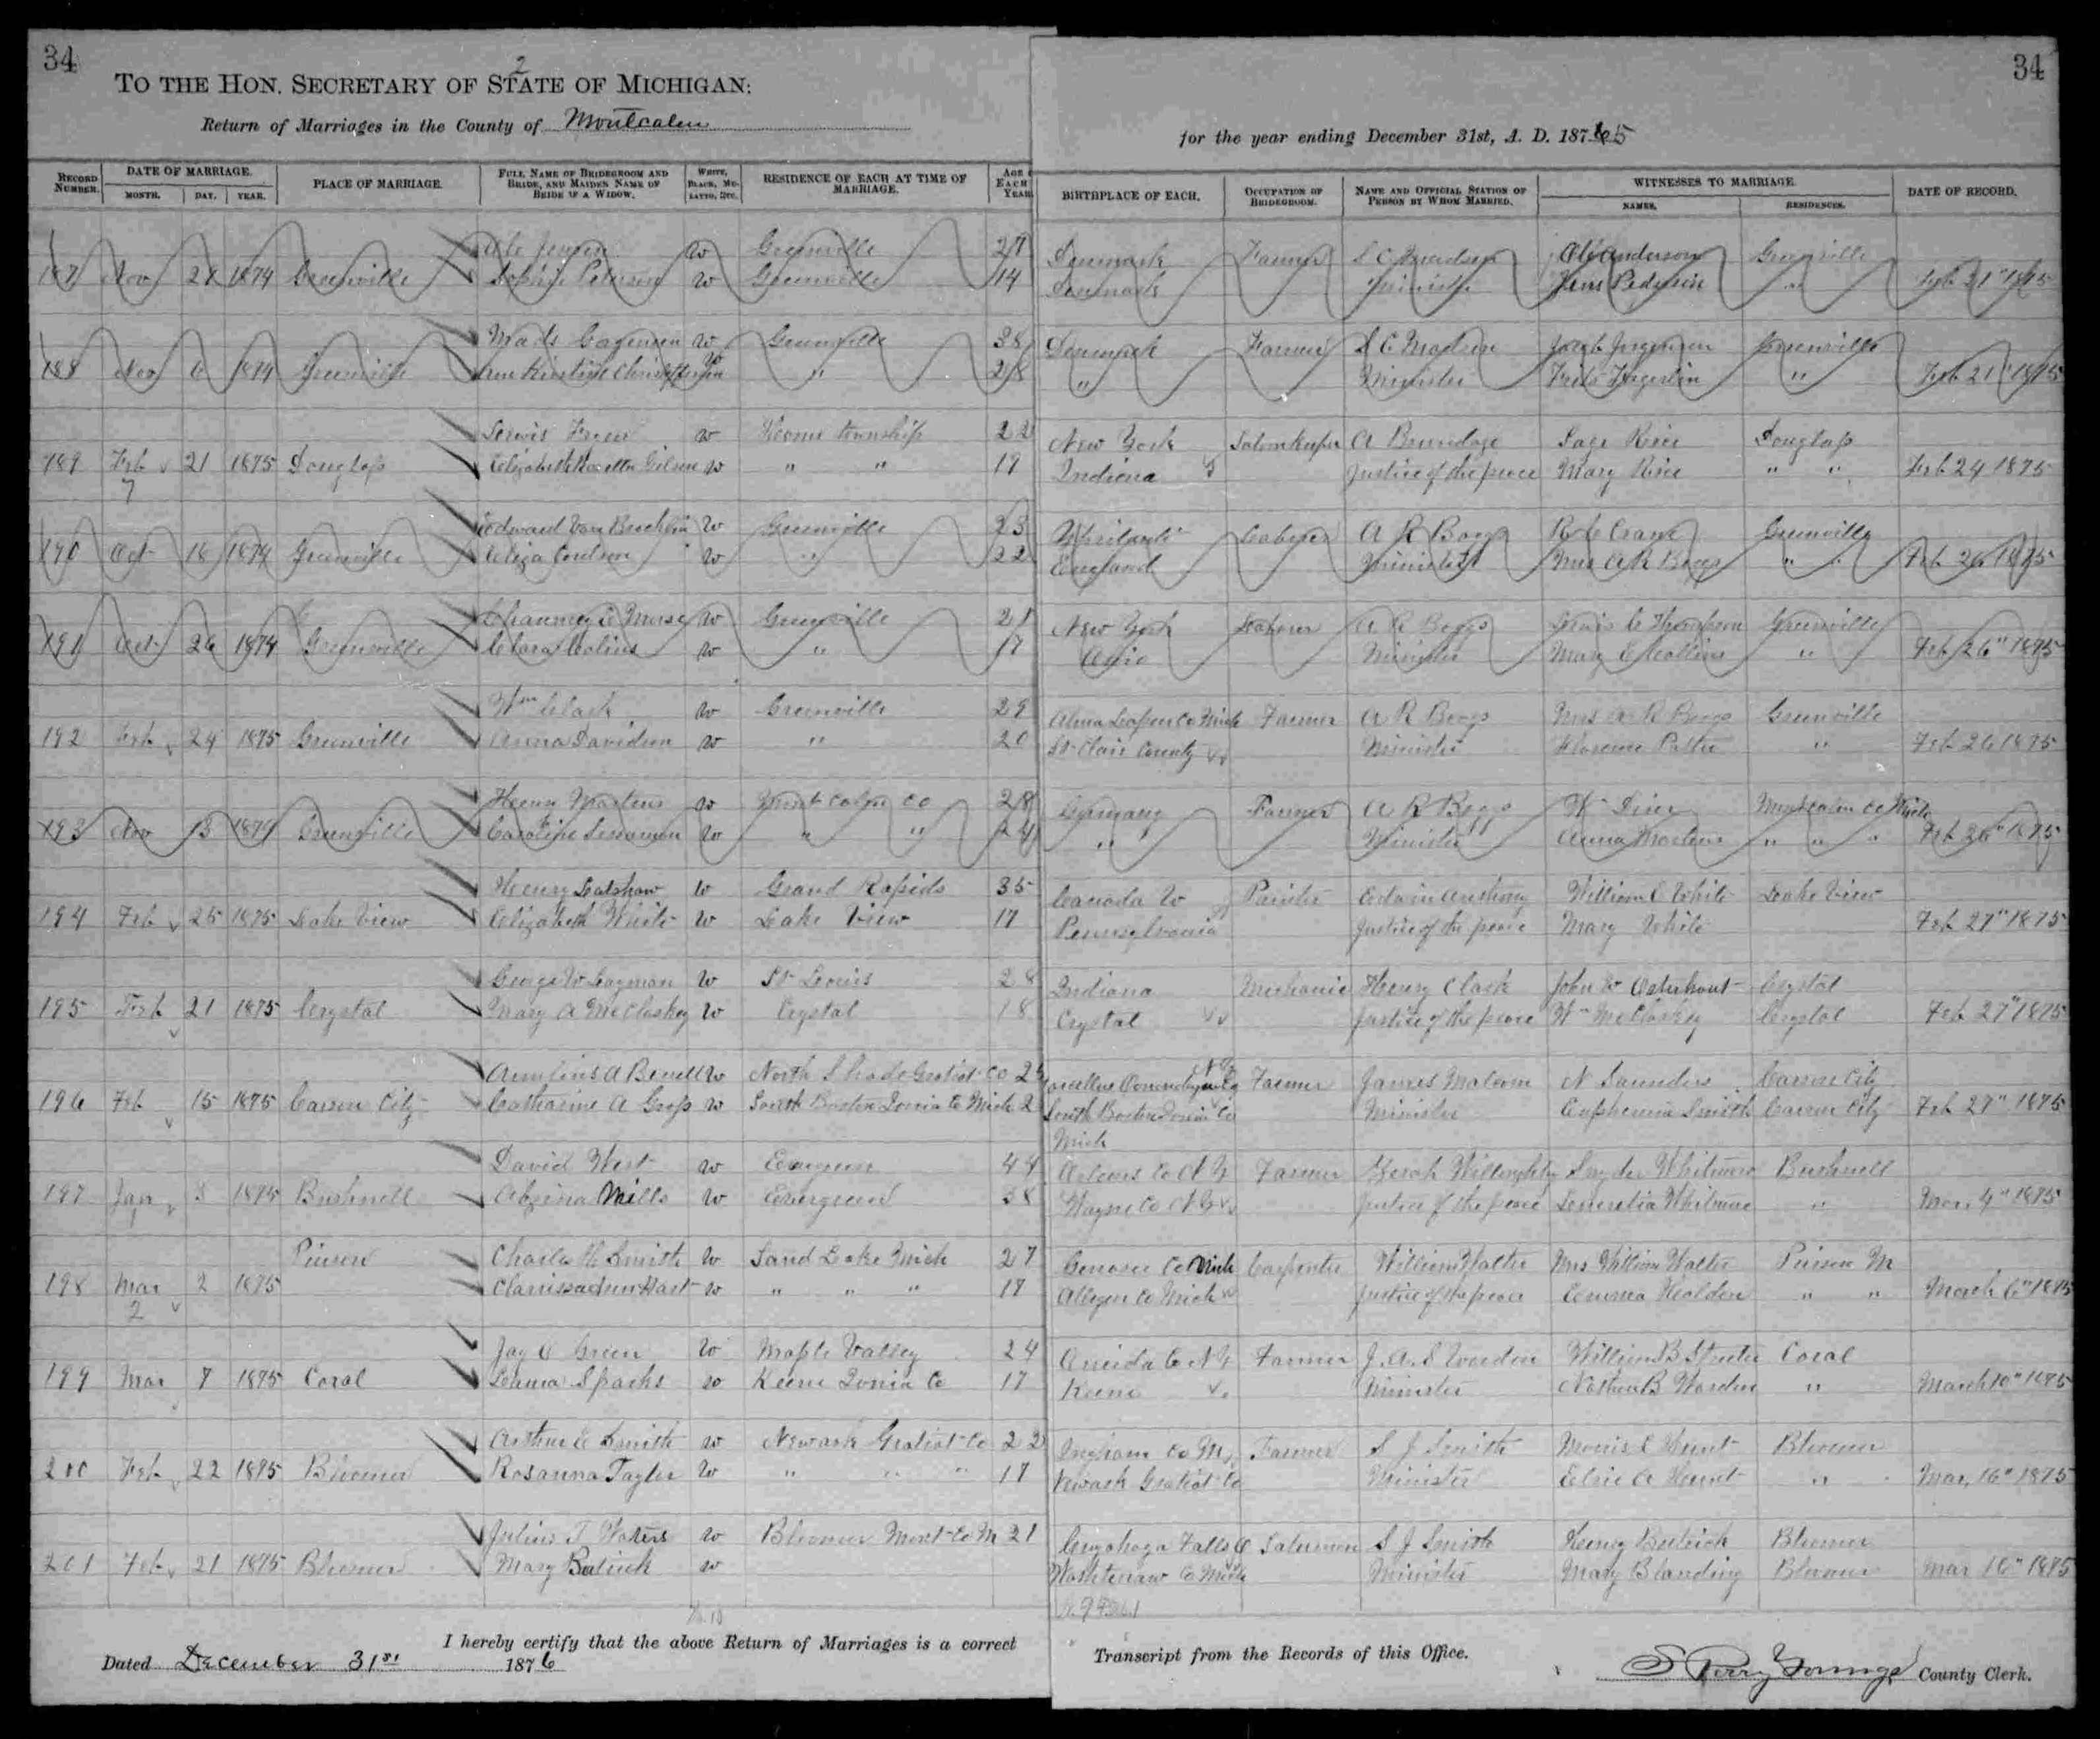 34
2
34
TO THE HON. SECRETARY OF STATE OF MICHIGAN:
Return of Marriages in the County of Montcalm
for the year ending December 31st, A. D. 187 5
RECORD NUMBER. DATE OF MARRIAGE. PLACE OF MARRIAGE. FULL NAME OF BRIDEGROOM AND BRIDE, AND MAIDEN NAME OF BRIDE IF A WIDOW. WHITE, BLACK, MULATTO, ETC. RESIDENCE OF EACH AT TIME OF MARRIAGE. AGE EACH YEAR. BIRTHPLACE OF EACH. OCCUPATION OF BRIDEGROOM. NAME AND OFFICIAL STATION OF PERSON BY WHOM MARRIED. WITNESSES TO MARRIAGE. DATE OF RECORD.
MONTH. DAY. YEAR. NAMES. RESIDENCES.
Ole Jensen w Greenville 27 Denmark Farmer S C Ole Anderson Greenville
187 Nov 1874 Greenville Sophie Peterson w Greenville 14 Denmark Minister Jens Pedersen " Feb 21" 1875
Mads w Greenville 38 Denmark Farmer S C Madsen Jorgensen Greenville
188 Nov 6 1874 Greenville w " 28 " Minister " Feb 21" 1875
Lewis w Home township 22 New York Saloonkeeper A Brundage Sage Rice Douglass
189 Feb 21 1875 Douglass Elizabeth Rosetta Gilson w " " 19 Indiana Justice of the peace Mary Rice " " Feb 24 1875
7
Edward Van w Greenville 23 Ypsilanti Laborer A R Boggs R C Crane Greenville
190 Oct 18 1874 Greenville Eliza Coulson w " 22 England Minister Mrs A R Boggs " " Feb 26 1875
Chauncy E Morse w Greenville 21 New York Laborer A R Boggs Lewis C Greenville
191 Oct 26 1874 Greenville Clara Colins w " 17 Ohio Minister Mary E Collins " Feb 26" 1875
Wm Clark w Greenville 29 Alma Lapeer Co Mich Farmer A R Boggs Mrs A R Boggs Greenville
192 Feb 24 1875 Greenville Anna Davidson w " 20 St Clair County Minister Florence " Feb 26 1875
Henry Martens w Montcalm Co 28 Germany Farmer A R Boggs Wm Montcalm Co Mich
193 Nov 13 1874 Greenville Caroline w " " 24 " Minister Anna Martens " " " Feb 26" 1875
Henry Latshaw w Grand Rapids 35 Canada W Painter Edwin William E White Lake View
194 Feb 25 1875 Lake View Elizabeth White w Lake View 17 Pennsylvania Justice of the peace Mary White Feb 27" 1875
George W Layman w St Louis 28 Indiana Mechanic Henry Clark John W Osterhout Crystal
195 Feb 21 1875 Crystal Mary A McCloskey w Crystal 18 Crystal Justice of the peace Wm McCloskey Crystal Feb 27" 1875
w North Shade Gratiot Co N Y Farmer James Malcom N Saunders Carson City
196 Feb 15 1875 Carson City Catharine A Gross w South Boston Ionia Co Mich South Boston Ionia Co Minister Euphemia Smith Carson City Feb 27" 1875
Mich
David West w Evergreen 44 Orleans Co N Y Farmer Willoughby Snyder Whitmore Bushnell
197 Jan 3 1875 Bushnell Mills w Evergreen 38 Wayne Co N Y Justice of the peace Lucretia Whitmore " Mar. 4" 1875
Pierson Charles H Smith w Sand Lake Mich 27 Genesee Co Mich Carpenter William Walter Mrs William Walter Pierson M
198 Mar 2 1875 Clarissa Ann Hart w " " " 17 Allegan Co Mich Justice of the peace Emma Holden " " March 6" 1875
2
Jay O Green w Maple Valley 24 Oneida Co N Y Farmer J. A. S Worden William B Coral
199 Mar 7 1875 Coral Sparks w Keene Ionia Co 17 Keene Minister Nathan B Worden " March 10" 1875
Arthur E Smith w Newark Gratiot Co 22 Ingham Co M Farmer S J Smith Morris E Hunt Bloomer
200 Feb 22 1875 Bloomer Rosanna Taylor w " " " 17 Newark Gratiot Co Minister Elsie A Hunt " Mar, 16" 1875
Julius T Waters w Bloomer Mont Co M 21 Cuyahoga Falls O Salesman S J Smith Henry Bloomer
201 Feb 21 1875 Bloomer Mary w Washtenaw Co Mich Minister Mary Blanding Bloomer Mar 16" 1875
I hereby certify that the above Return of Marriages is a correct Transcript from the Records of this Office.
Dated December 31st 1876 S Perry Youngs County Clerk.